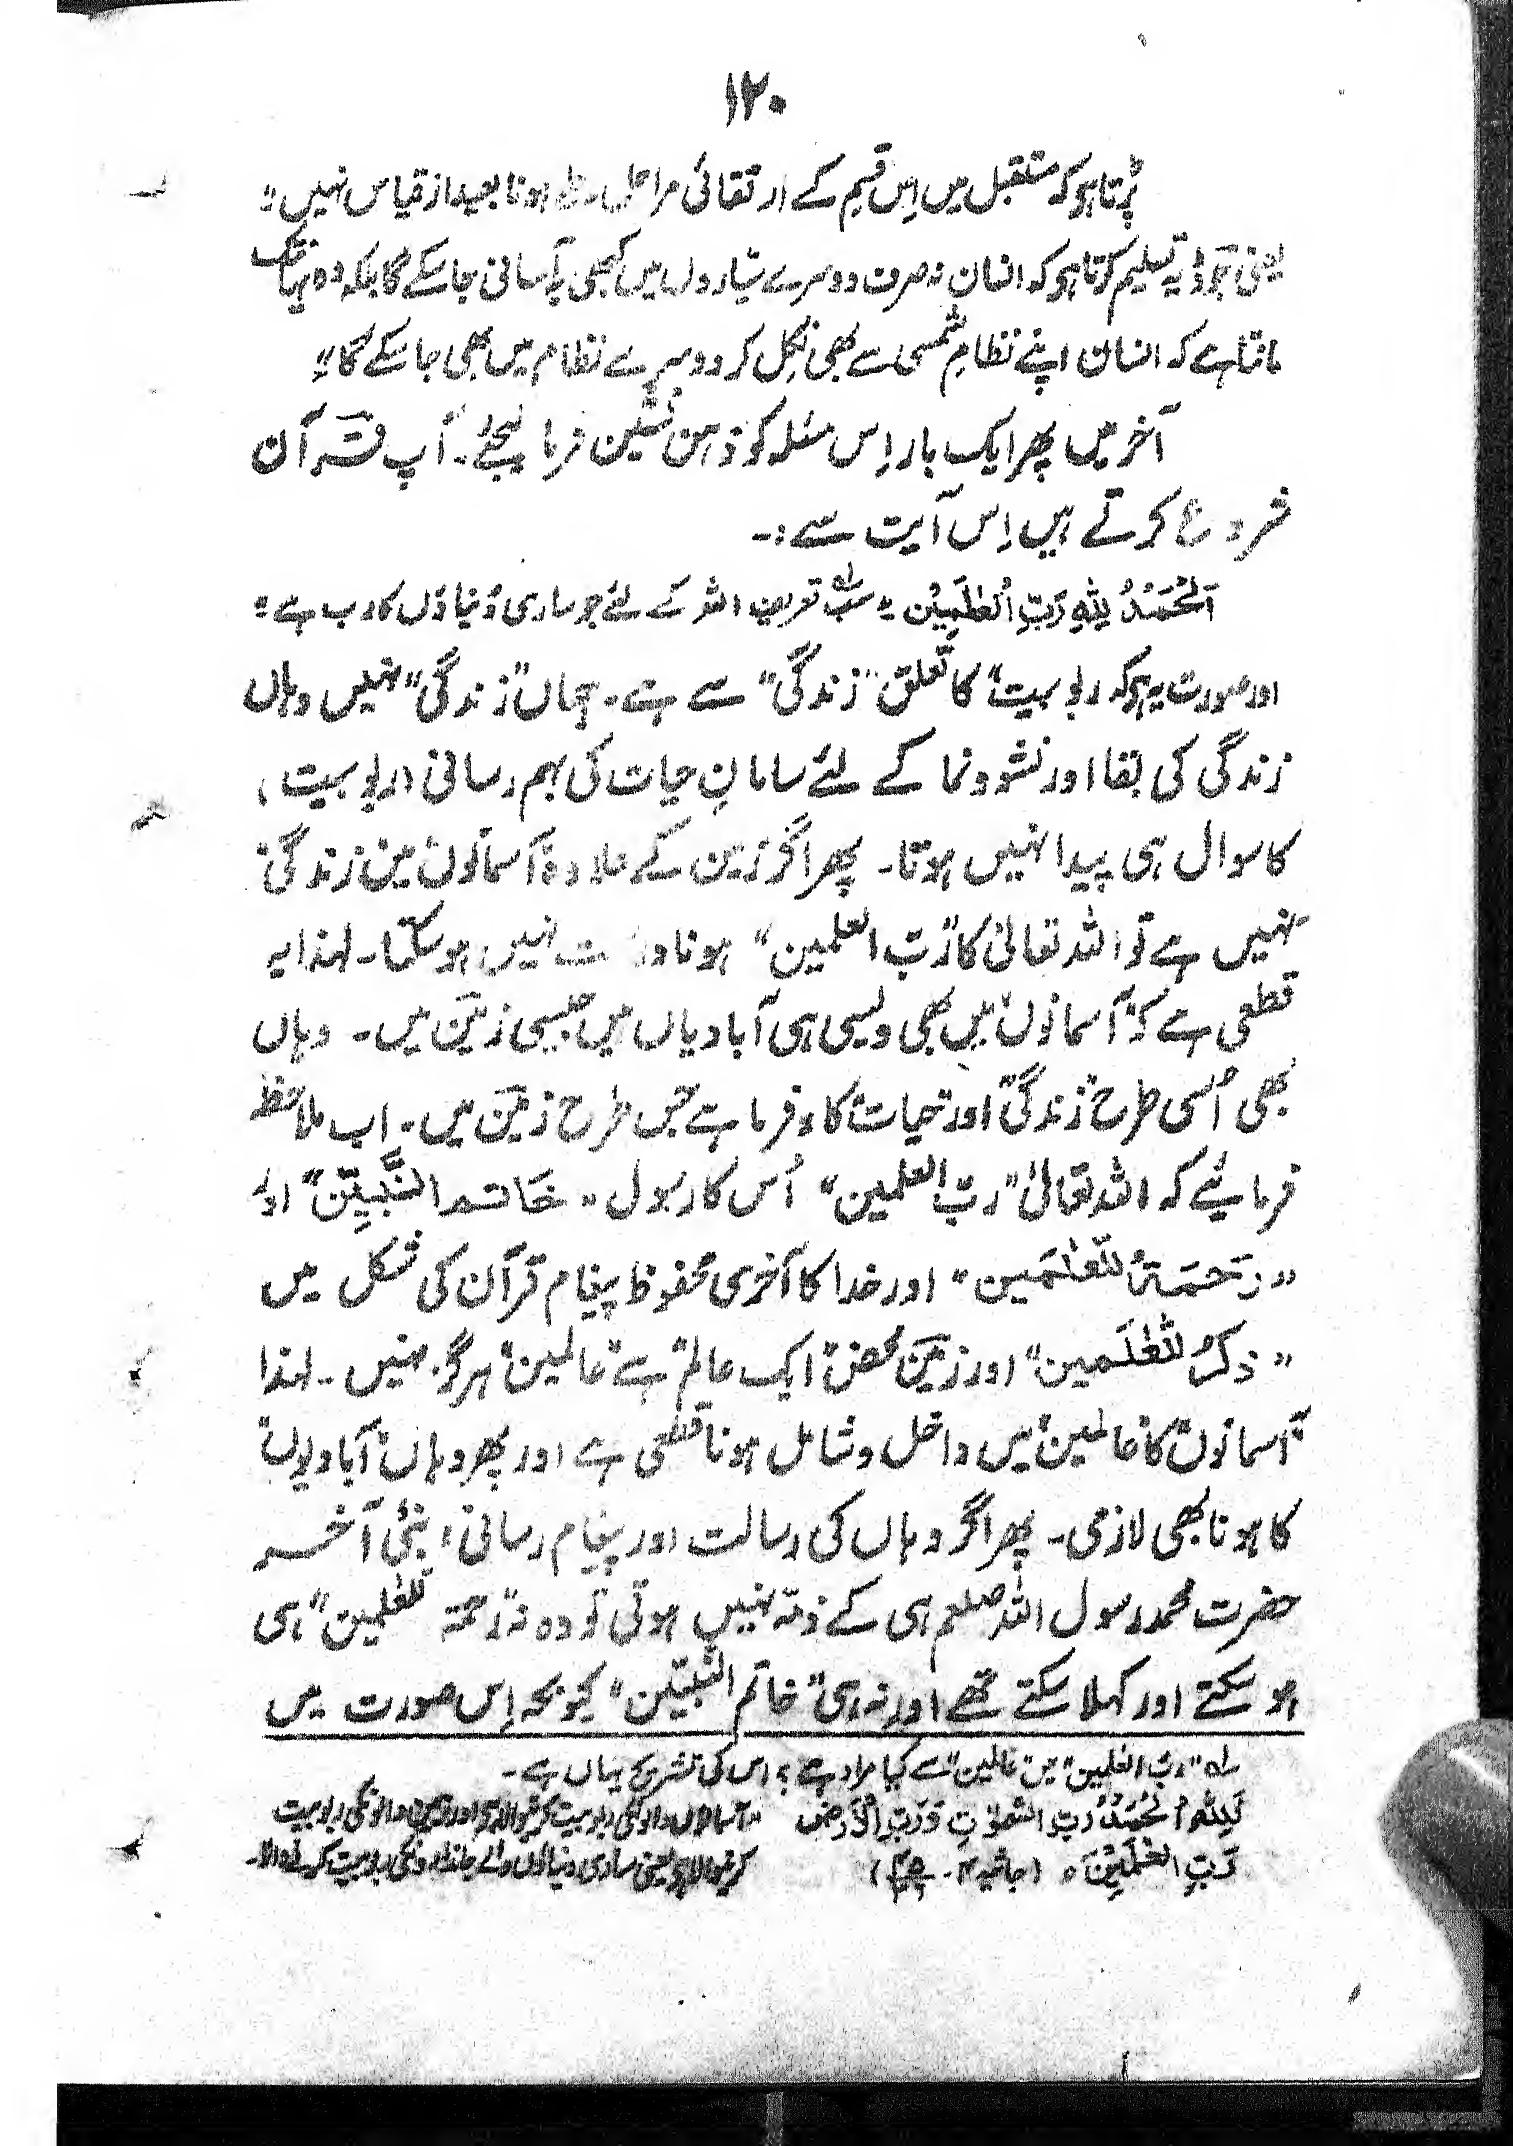 ۱۲۰
پڑتا ہو کہ مستقبل میں اِس قسم کے ارتقائی مراحل طے ہونا بعید از قیاس نہیں"
یعنی تو یہ تسلیم کرتا ہو کہ انسان نہ صرف دوسرے سیاروں میں کبھی بآسانی جا سکے گا بلکہ وہ یہانتک
مانتا ہے کہ انسان اپنے نظامِ شمسی سے بھی نِکل کر دوسرے نظام میں بھی جا سکے گا"
آخر میں پھر ایک بار اِس مسئلہ کو ذہن نشین فرما لیجئے۔ آپ قرآن
شروع کرتے ہیں اِس آیت سے:۔
اَلْحَمْدُ لِلّٰهِ رَبِّ الْعٰلَمِیْن "سب۱ تعریف اللہ کے لئے جو ساری دُنیاؤں کا رب ہے"
اور صورت یہ ہو کہ "ربوبیت" کا تعلق "زندگی" سے ہے۔ جہاں "زندگی" نہیں وہاں
زندگی کی بقا اور نشوونما کے لئے سامانِ حیات کی بہم رسانی (ربوبیت)
کا سوال ہی پیدا نہیں ہوتا۔ پھر اگر زمین کے علاوہ "آسمانوں" میں "زندگی"
نہیں ہے تو اللہ تعالیٰ کا "ربّ العٰلمین" ہونا نہیں ہو سکتا۔ لہٰذا یہ
قطعی ہے کہ "آسمانوں" میں بھی ویسی ہی آبادیاں ہیں جیسی زمین میں۔ وہاں
بھی اُسی طرح "زندگی" اور "حیات" کارفرما ہے جس طرح زمین میں۔ اب ملاحظہ
فرمایئے کہ اللہ تعالیٰ "ربّ العٰلمین" اُس کا رسول "خَاتم النَّبِیّٖن" اور
"رَحْمَةٌ للعٰلَمین" اور خدا کا آخری محفوظ پیغام قرآن کی شکل میں
"ذِکرٌ للعٰلَمین" اور زمین محض "ایک عالم" ہے "عالمین" ہرگز نہیں۔ لہٰذا
"آسمانوں" کا "عالمین" میں داخل و شامل ہونا قطعی ہے اور پھر وہاں "آبادیوں"
کا ہونا بھی لازمی۔ پھر اگر وہاں کی رسالت اور پیغام رسانی، نبئی آخر
حضرت محمد رسول اللہ صلعم ہی کے ذمّہ نہیں ہوتی تو وہ نہ "رحمۃ للعٰلمین" ہی
ہو سکتے اور کہلا سکتے تھے اور نہ ہی "خاتم النّبیّٖن" کیونکہ اِس صورت میں
۱ "ربّ العٰلمین" میں "عالمین" سے کیا مراد ہے؟ اس کی تشریح یہاں ہے۔
فَلِلّٰهِ الْحَمْدُ رَبِّ السَّمٰوٰتِ وَرَبِّ الْاَرْضِ "آسمانوں والونکی ربوبیت کرنیوالا ہی اور زمین والونکی ربوبیت
رَبِّ الْعٰلَمِیْنَ ہ (جاثیہ ۴۔ کرنیوالا ہی یعنی ساری دنیاؤں والے جاندارونکی ربوبیت کرنے والا۔